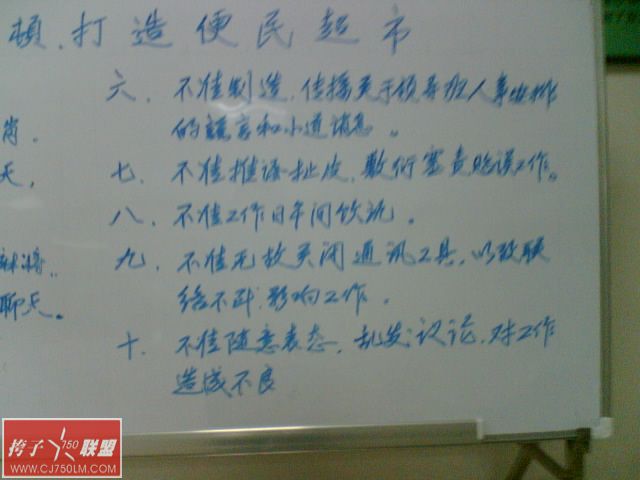 顿.打造便民超市
六.不准制造.传播关于领导班人事安排
的谣言和小道消息。
肖.
七.不准推诿扯皮.敷衍塞责贻误工作。
天,
八.不准工作日午间饮酒.
九.不准无故关闭通讯工具.以致联
麻将..
络不到.影响工作.
聊天。
十.不准随意表态.乱发议论.对工作
造成不良
挎子750联盟
WWW.CJ750LM.COM